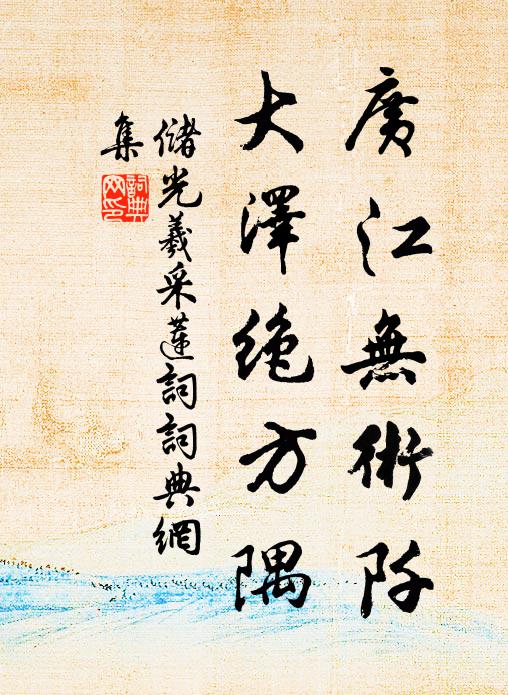 廣江無術阡
大澤絶方隅
儲光羲采蓮詞詞典網
集
詞典
网印